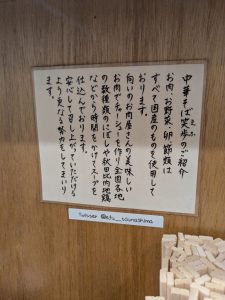 中華そば笑歩のご紹介
お肉、お野菜、卵、節類は
すべて国産のものを使用して
おります。
向いのお肉屋さんの美味しい
お肉でチャーシューを作り全国各地
の数種類のにぼしや秋田比内地鶏
などから時間をかけてスープを
仕込んでおります。
安心して召し上がっていただける
よう更なる努力をしてまいり
ます。